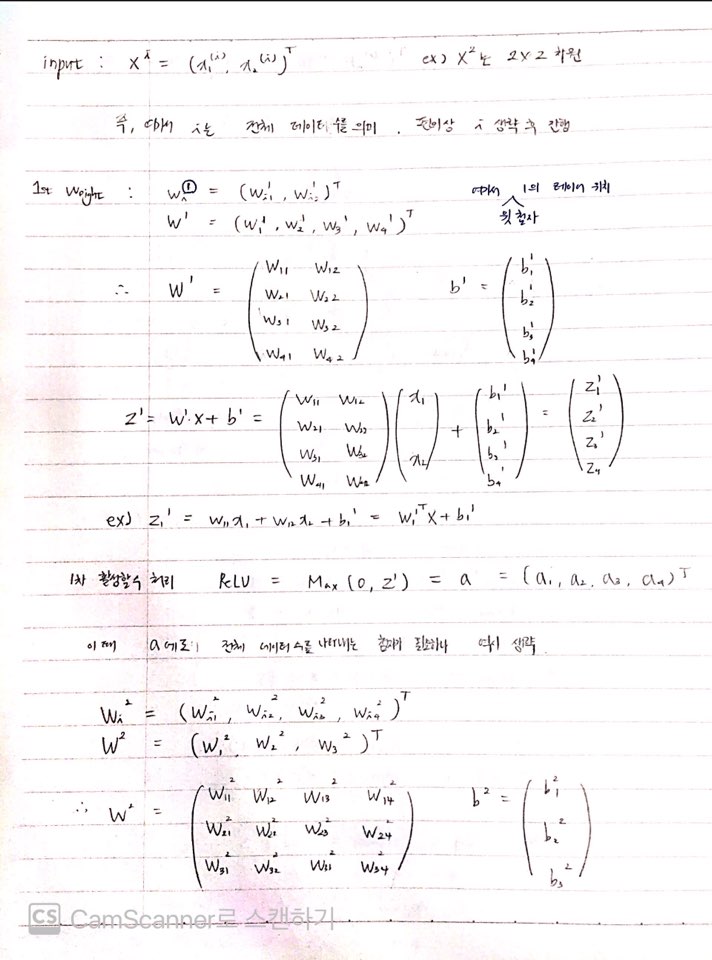 input : X^i = (x_1^(i), x_2^(i))^T ex) X^2는 2x2 차원
즉, 여기서 i는 전체 데이터 수를 의미. 편의상 i 생략 후 진행
1st Weight : w_i^① = (w_i1^1, w_i2^1)^T 여기서 1의 레이어 위치
윗첨자
W^1 = (w_1^1, w_2^1, w_3^1, w_4^1)^T
∴ W^1 = ( w_11 w_12 b^1 = ( b_1^1
w_21 w_22 b_2^1
w_31 w_32 b_3^1
w_41 w_42 ) b_4^1 )
Z^1 = W^1·X + b^1 = ( w_11 w_12 ) ( x_1 ) + ( b_1^1 ) = ( z_1^1 )
w_21 w_22 b_2^1 z_2^1
w_31 w_32 b_3^1 z_3^1
w_41 w_42 x_2 b_4^1 z_4
ex) z_1^1 = w_11 x_1 + w_12 x_2 + b_1^1 = w_1^1T X + b_1^1
1차 활성함수 처리 ReLU = Max (0, Z^1) = a = (a_1, a_2, a_3, a_4)^T
이 때 a에도 전체 데이터 수를 나타내는 첨자가 필요하나 역시 생략.
W_i^2 = (W_i1^2, W_i2^2, W_i3^2, W_i4^2)^T
W^2 = (W_1^2, W_2^2, W_3^2)^T
∴ W^2 = ( W_11^2 W_12^2 W_13^2 W_14^2 b^2 = ( b_1^2
W_21^2 W_22^2 W_23^2 W_24^2 b_2^2
W_31^2 W_32^2 W_33^2 W_34^2 ) b_3^2 )
CS CamScanner로 스캔하기